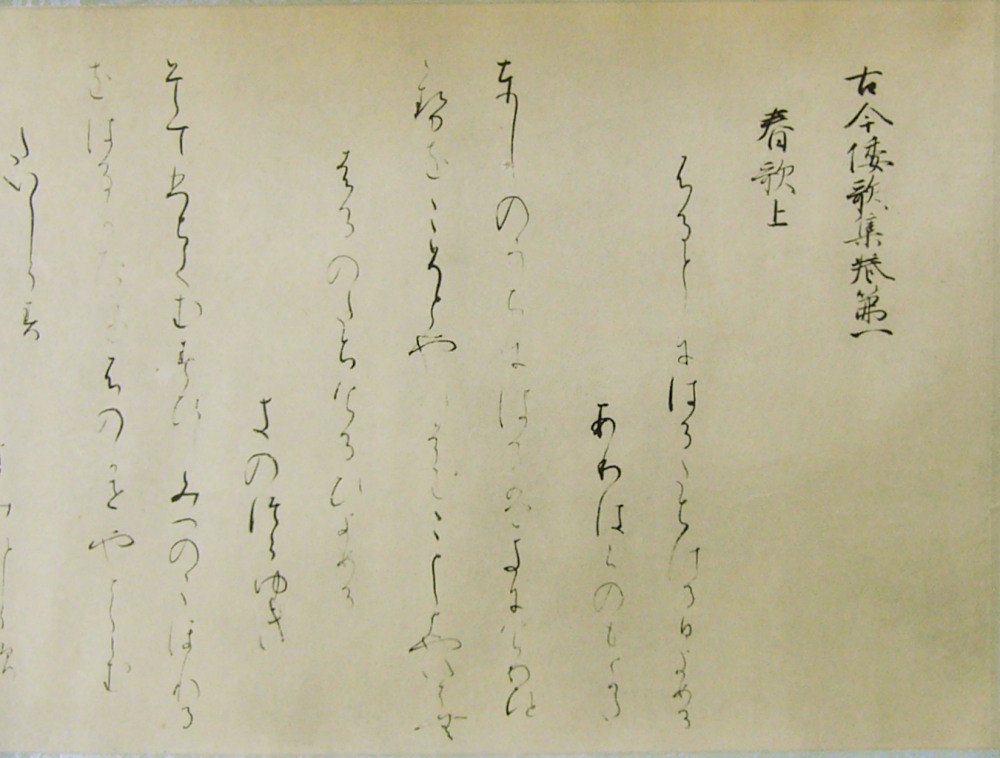 古今倭歌集巻第一
春歌上
ふるとしにはるたちける日よめる
ありはらのもとかた
としのうちにはるはきにけりひと
ゝせをこそとやいはむことしとやいはむ
はるのたちけるひよめる
きのつらゆき
そてひちてむすひしみつのこほれる
をはるたつけふのかせやとくらむ
たいしらす